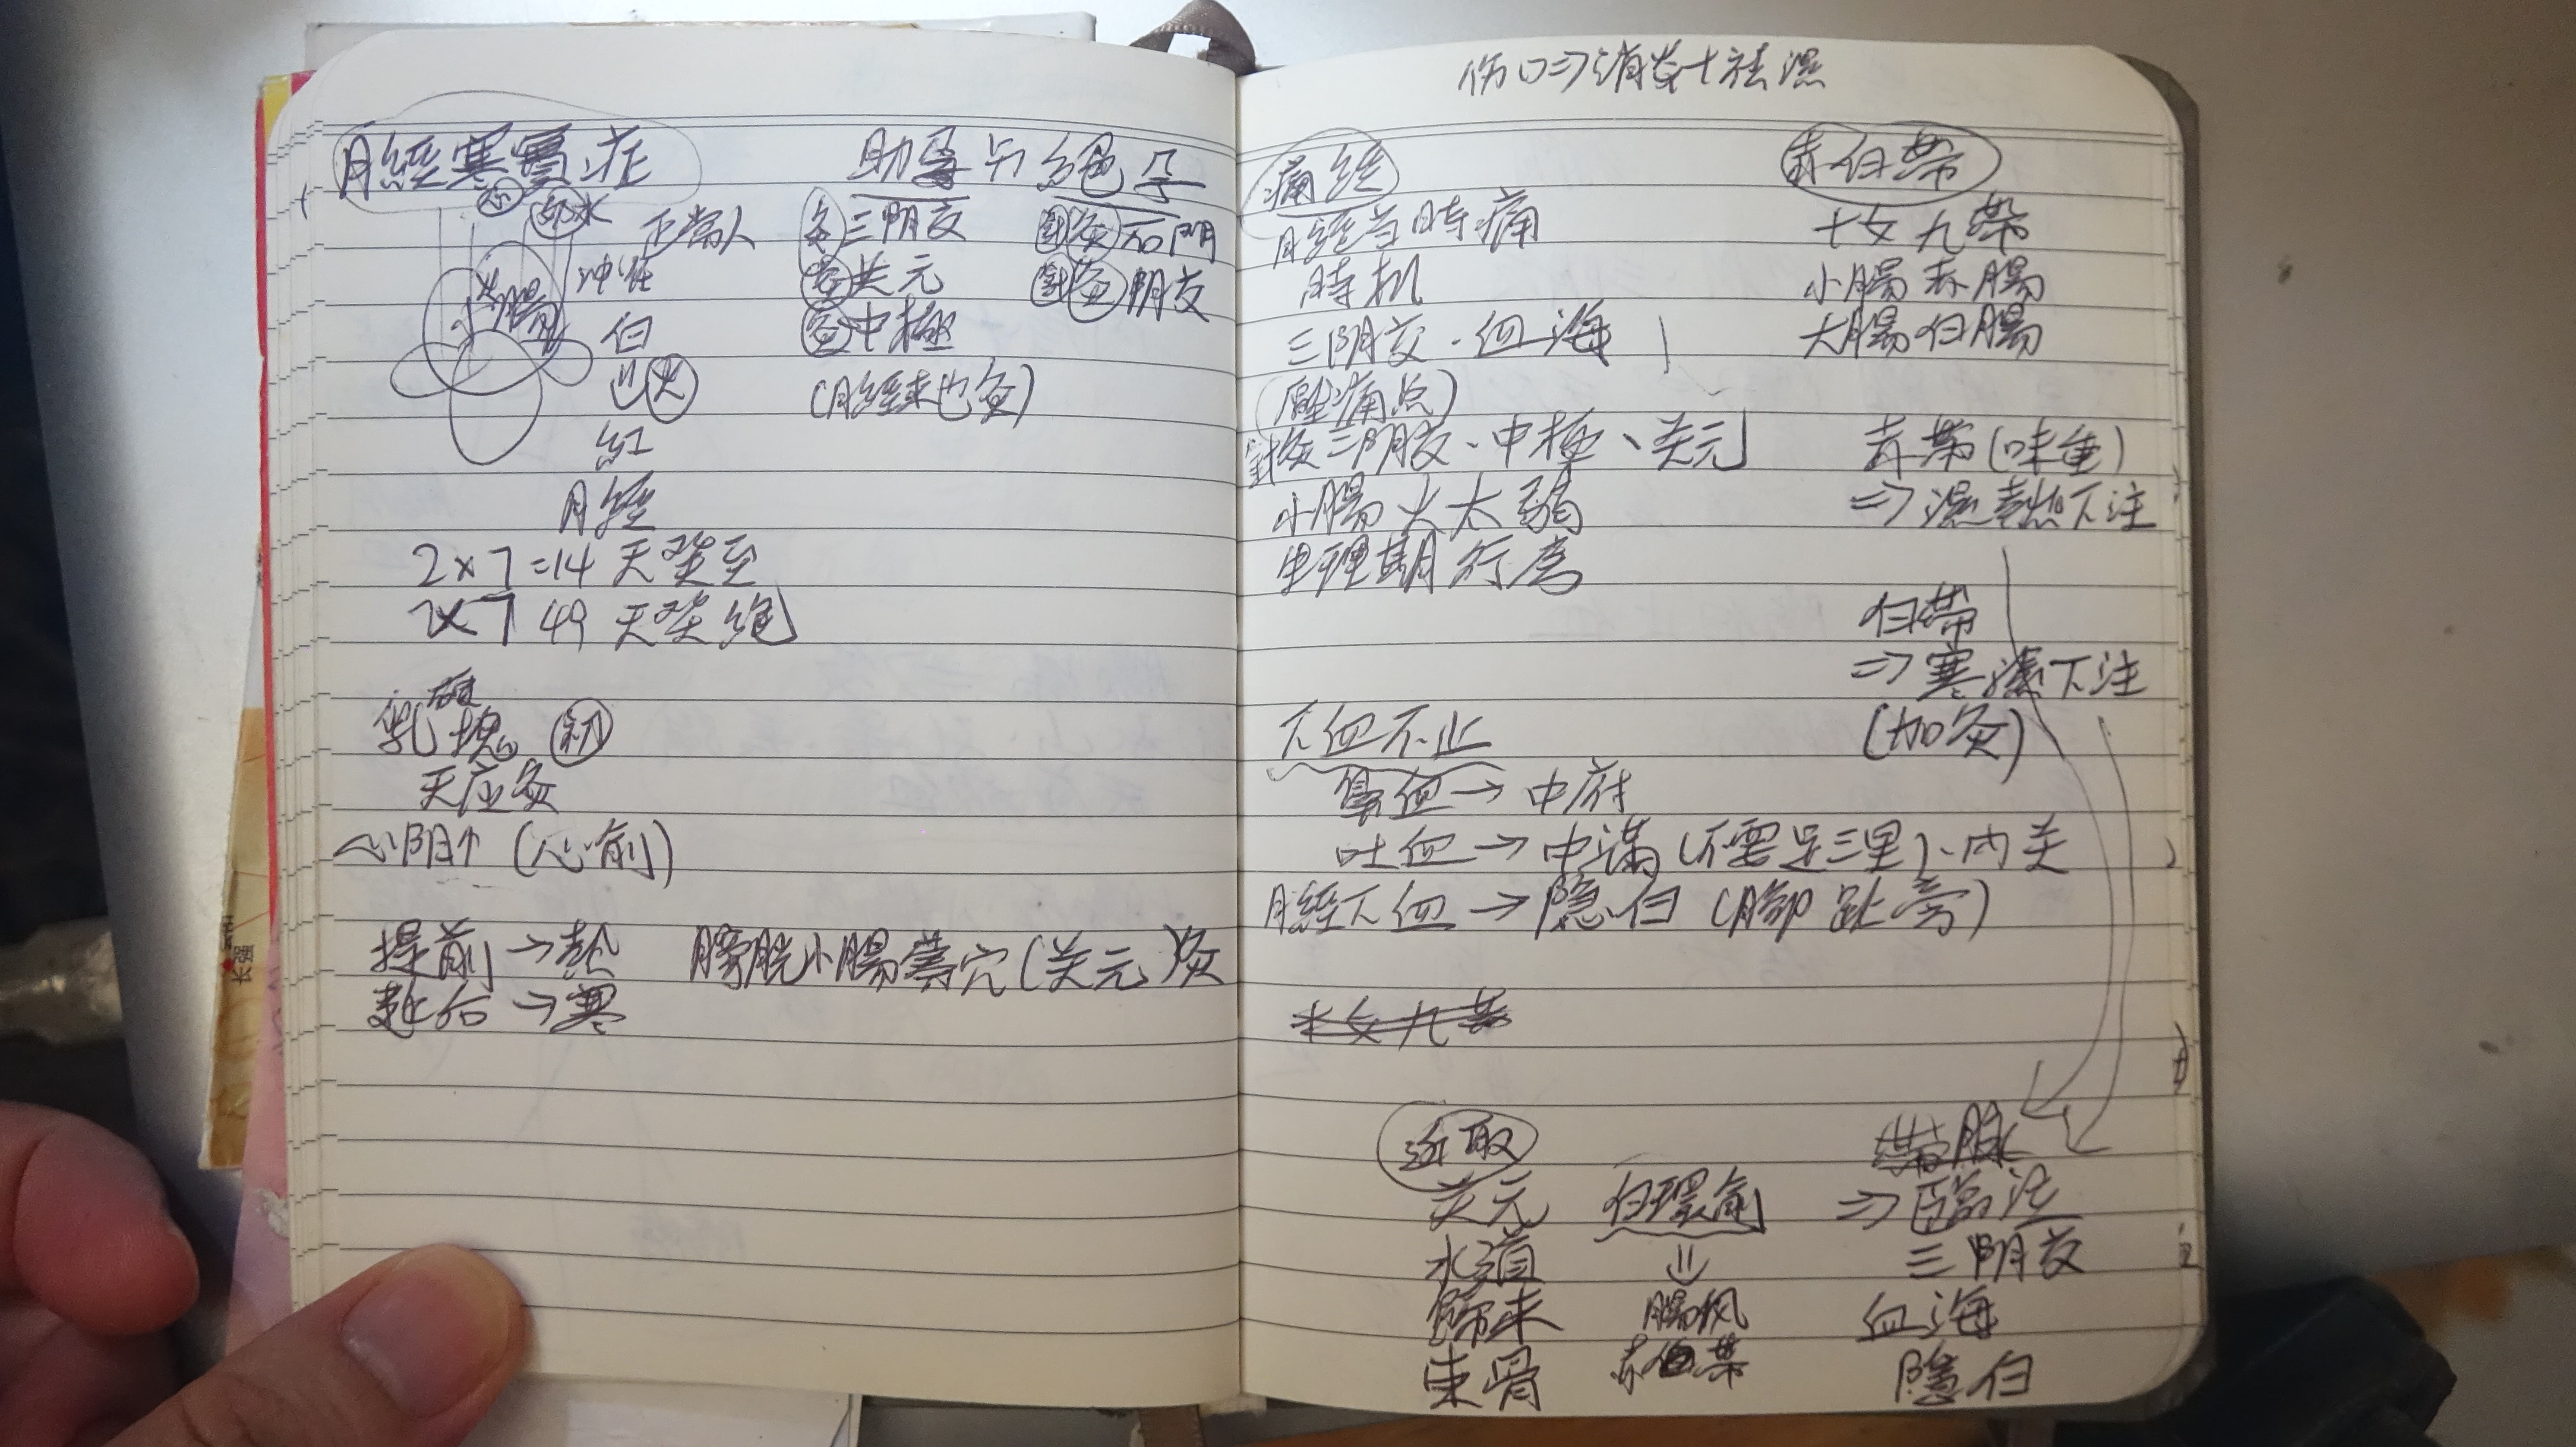 月經寒實症
水 正常人
小腸 冲任
白
火
紅
月經
2×7=14 天癸至
7×7 49 天癸絕
乳硬塊 初
天应灸
心阴↑ (心俞)
提前→热
赴后→寒
助孕与絕孕
三阴交
关元
中極
(月經來也灸)
針灸石門
針灸三阴交
膀胱小腸募穴(关元)灸
伤口⇒消炎+祛濕
痛經
月經当時痛
時机
三阴交·血海
(壓痛点)
針灸三阴交、中極、关元
小腸火太弱
生理期行房
下血不止
鼻血→中府
吐血→中满(不要足三里)、内关
月經下血→隐白(腳趾旁)
十女九帶
近取
关元
水道
歸来
束骨
白環俞
⇓
腸风
赤白帶
赤白帶
十女九帶
小腸赤腸
大腸白腸
赤帶(味重)
⇒濕熱下注
白帶
⇒寒濕下注
(加灸)
帶脉
⇒臨泣
三阴交
血海
隐白